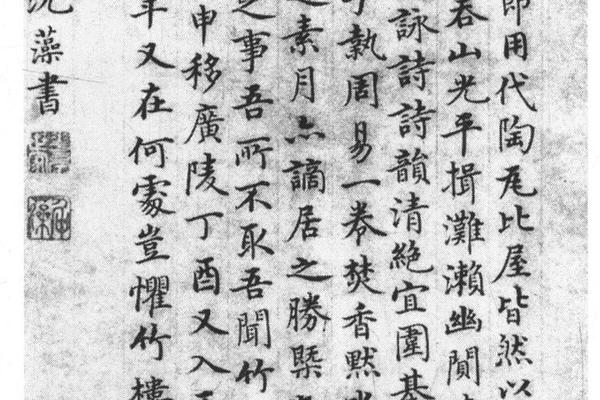 用代陶瓦比屋皆然以
吞山光平揖灘瀨幽闃
詠詩詩韻清絕宜圍棊
執周易一卷焚香默坐
素月亦謫居之勝槩
之事吾所不取吾聞竹
申移廣陵丁酉又入
年又在何處豈懼竹樓
沈藻書